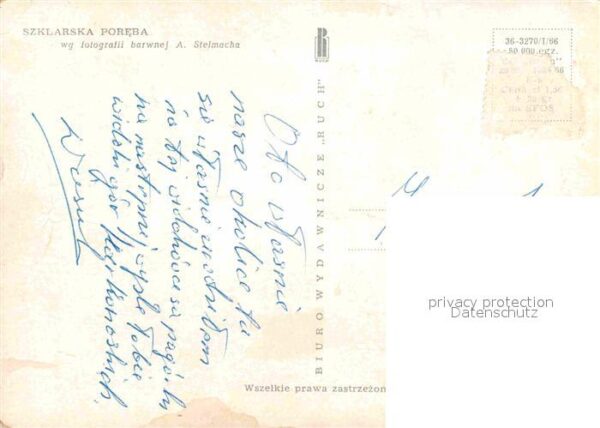 SZKLARSKA PORĘBA
wg fotografii barwnej A. Stelmacha
36-3270/I/66
BIURO WYDAWNICZE "RUCH"
Oto właśnie
nasze okolice tu
się właśnie urodziłam
na tej widokówce są pagórki
na następnej wyślę Tobie
widoki gór Karkonoskich
Wszelkie prawa zastrzeżon
privacy protection
Datenschutz